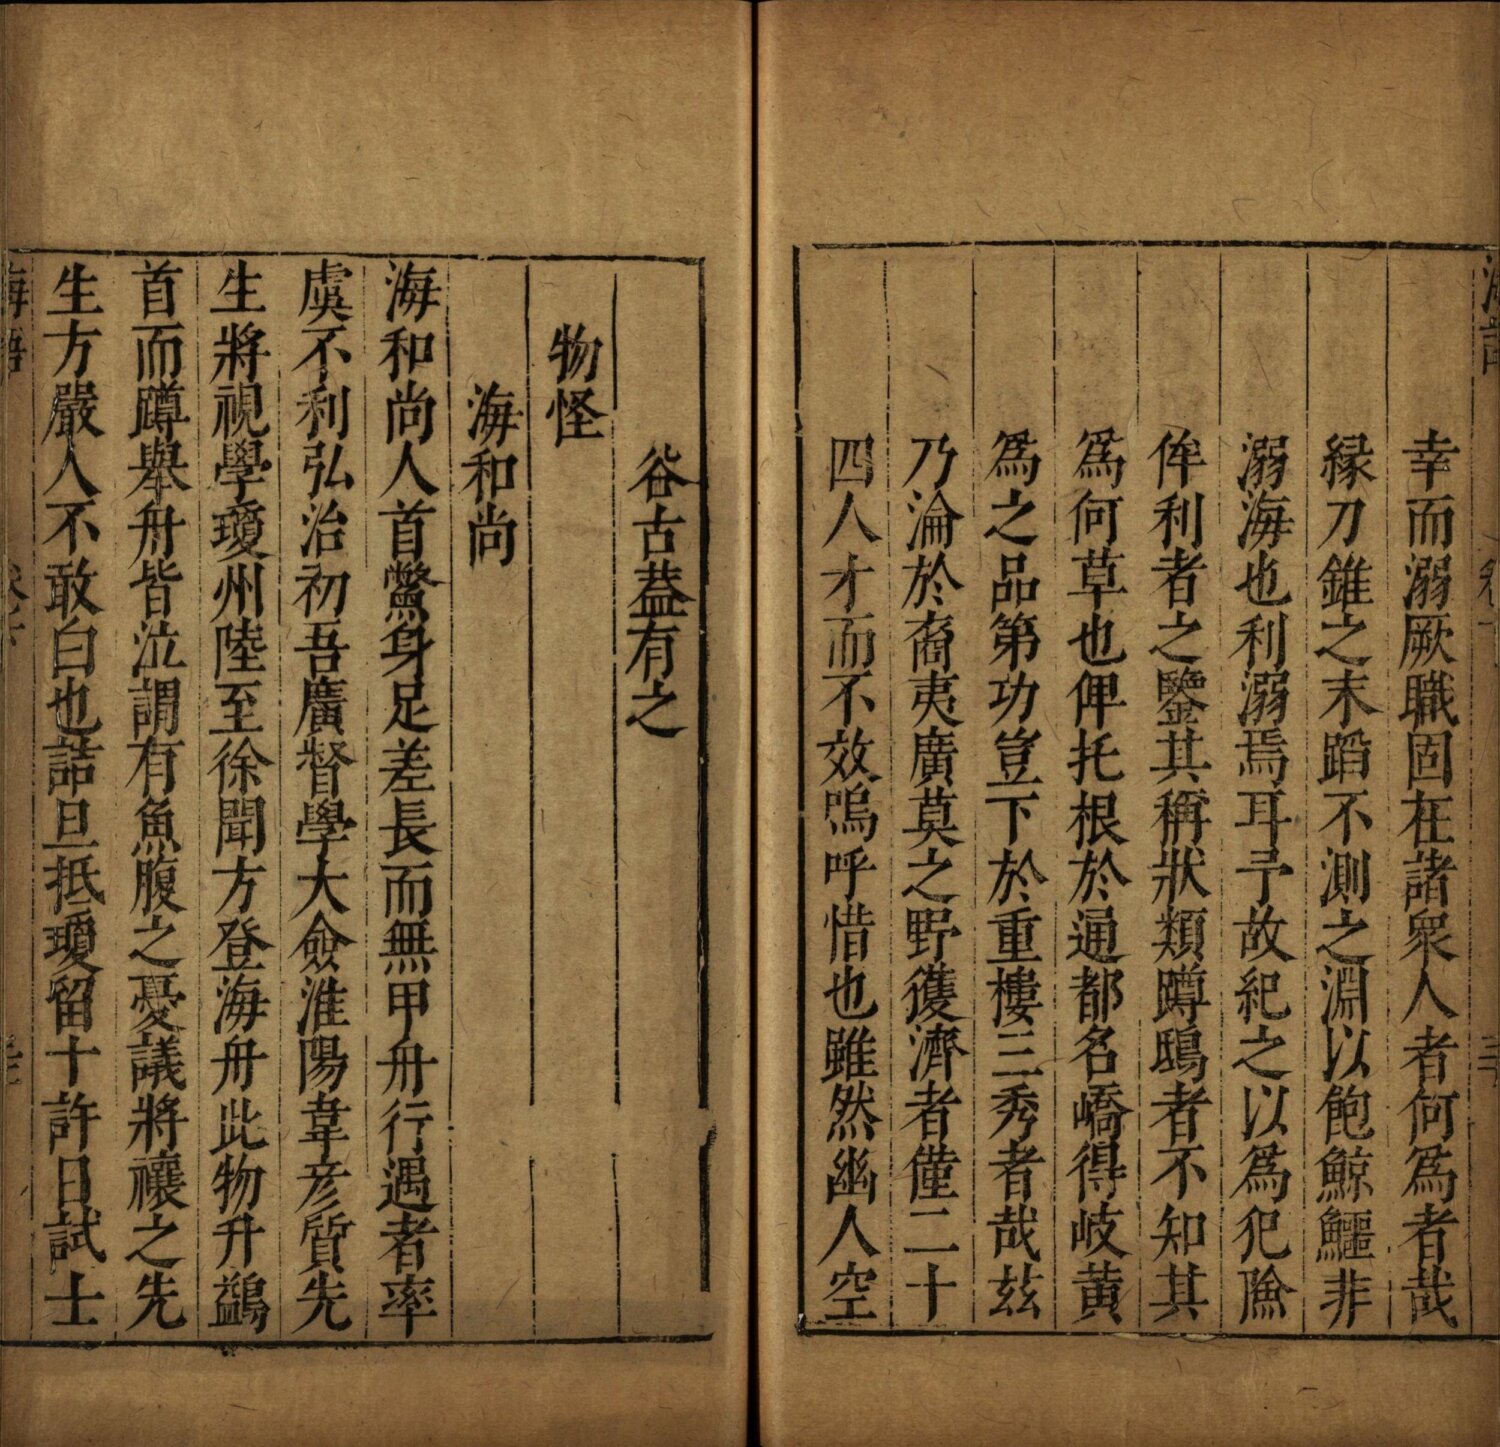 幸而溺厥職固在諸衆人者何爲者哉
緣刀錐之末蹈不測之淵以飽鯨鱷非
溺海也利溺焉耳予故紀之以爲犯險
侔利者之鑒其稱狀類蹲鴟者不知其
爲何草也俾托根於通都名嶠得岐黄
爲之品第功豈下於重樓三秀者哉玆
乃淪於裔夷廣莫之野獲濟者僅二十
四人才而不效嗚呼惜也雖然幽人空
谷古葢有之
物怪
海和尚
海和尚人首鱉身足差長而無甲舟行遇者率
虞不利弘治初吾廣督學大僉淮陽韋彦質先
生將視學瓊州陸至徐聞方登海舟此物升鷁
首而蹲舉舟皆泣謂有魚腹之憂議將禳之先
生方嚴人不敢白也詰旦抵瓊留十許日試士
海語